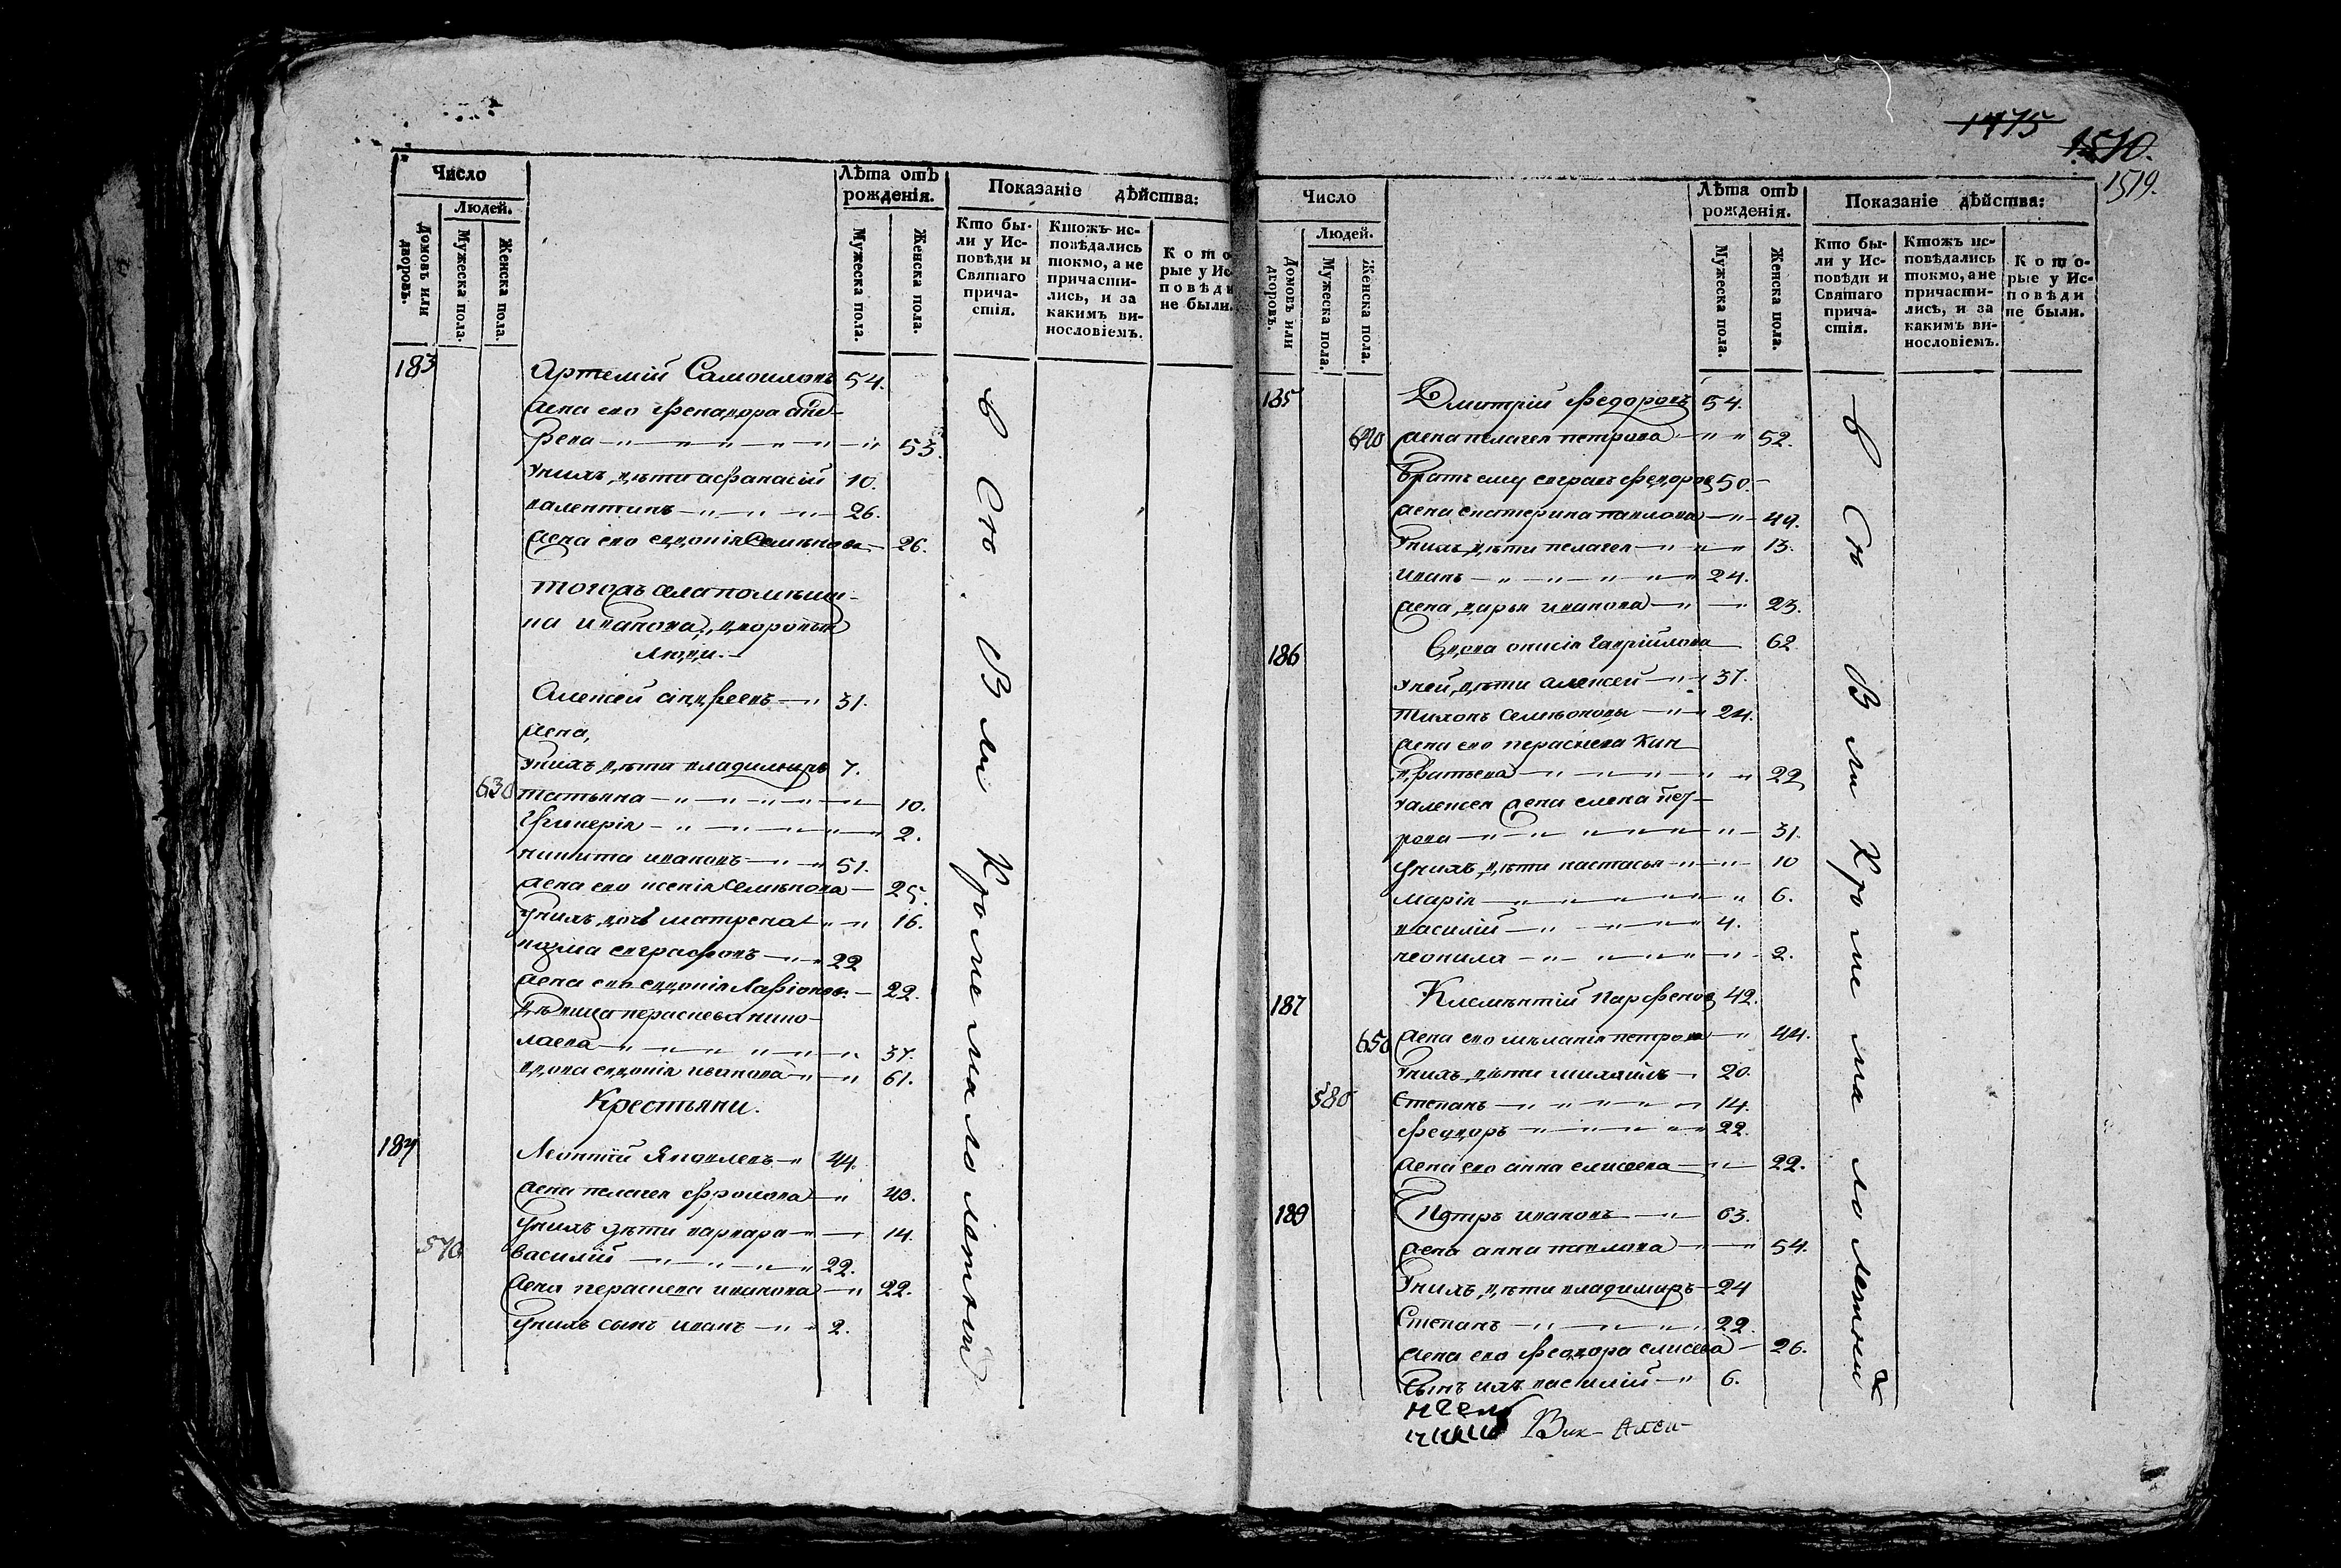 Число
Людей.
Домовъ или дворовъ.
Мужеска пола.
Женска пола.
Лѣта отъ рожденія.
Мужеска пола.
Женска пола.
Показаніе дѣйства:
Кто бы-
ли у Ис-
повѣди и
Святаго
прича-
стія.
Ктожъ ис-
повѣдались
токмо, а не
причасти-
лись, и за
какимъ ви-
нословіемъ.
Кото
рые у Ис
повѣди
не были.
183 Артемій Самоиловъ 54.
жена его Ѳеодора анд-
рева 53.
у нихъ дѣти афанасій 10.
валентинъ 26.
жена его евдокія Семѣнова 26.
тогожъ села помѣщи-
ка иванова, дворовыя
люди.
Алексей андреевъ 31.
жена,
у нихъ дѣти владимиръ 7.
630 татьяна 10.
2.
никита ивановъ 51.
жена его ксенія семѣнова 25.
у нихъ дочь матрена 16.
козма евграфовъ 22
жена его евдокія 22.
Дѣвица параскева нико-
лаева 37.
вдова евдокія иванова 61.
Крестьяни.
184 Леонтій Яковлевъ 44.
жена пелагея фролова 43.
у нихъ дѣти варвара 14.
570 василій 22.
жена параскева иванова 22.
у нихъ сынъ иванъ 2.
Всѣ Были Кроме малолѣтній
1475
1510.
1519.
Число
Людей.
Домовъ или дворовъ.
Мужеска пола.
Женска пола.
Лѣта отъ рожденія.
Мужеска пола.
Женска пола.
Показаніе дѣйства:
Кто бы-
ли у Ис-
повѣди и
Святаго
прича-
стія.
Ктожъ ис-
повѣдались
токмо, а не
причасти-
лись, и за
какимъ ви-
нословіемъ.
Кото-
рые у Ис-
повѣди
не были.
185 Дмитрій Федоровъ 54.
640 жена пелагея петрова 52.
Братъ ему евграфъ федоров 50.
жена екатерина павлова 49.
у нихъ дѣти пелагея 13.
иванъ 24.
жена дарья иванова 23.
186 Вдова анисія гаврилова 62
у ней дѣти алексей 37.
тихонъ семѣоновы 24.
жена его параскева кин
дратьева 22
у алексея жена елена пет-
рова 31.
у нихъ дѣти настасья 10
марія 6.
василій 4.
неонила 2.
187 Клемѣнтій Парфенов 42.
650 жена его мѣланія петрова 44.
у нихъ дѣти михаилъ 20.
580 степанъ 14.
феодоръ 22.
жена его анна елисеева 22.
189 Петръ ивановъ 63.
жена анна павлова 54.
у нихъ дѣти владимиръ 24
Степанъ 22.
жена его феодора елисева 26.
Сынъ ихъ василій 6.
Всѣ Были Кроме малолетней